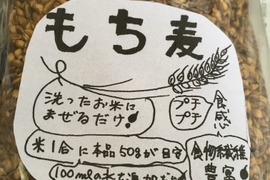 もち麦
洗ったお米に
まぜるだけ!
プチ
プチ
食感
米1合に本品50gが目安
100mlの水を追加
食物繊維
豊富